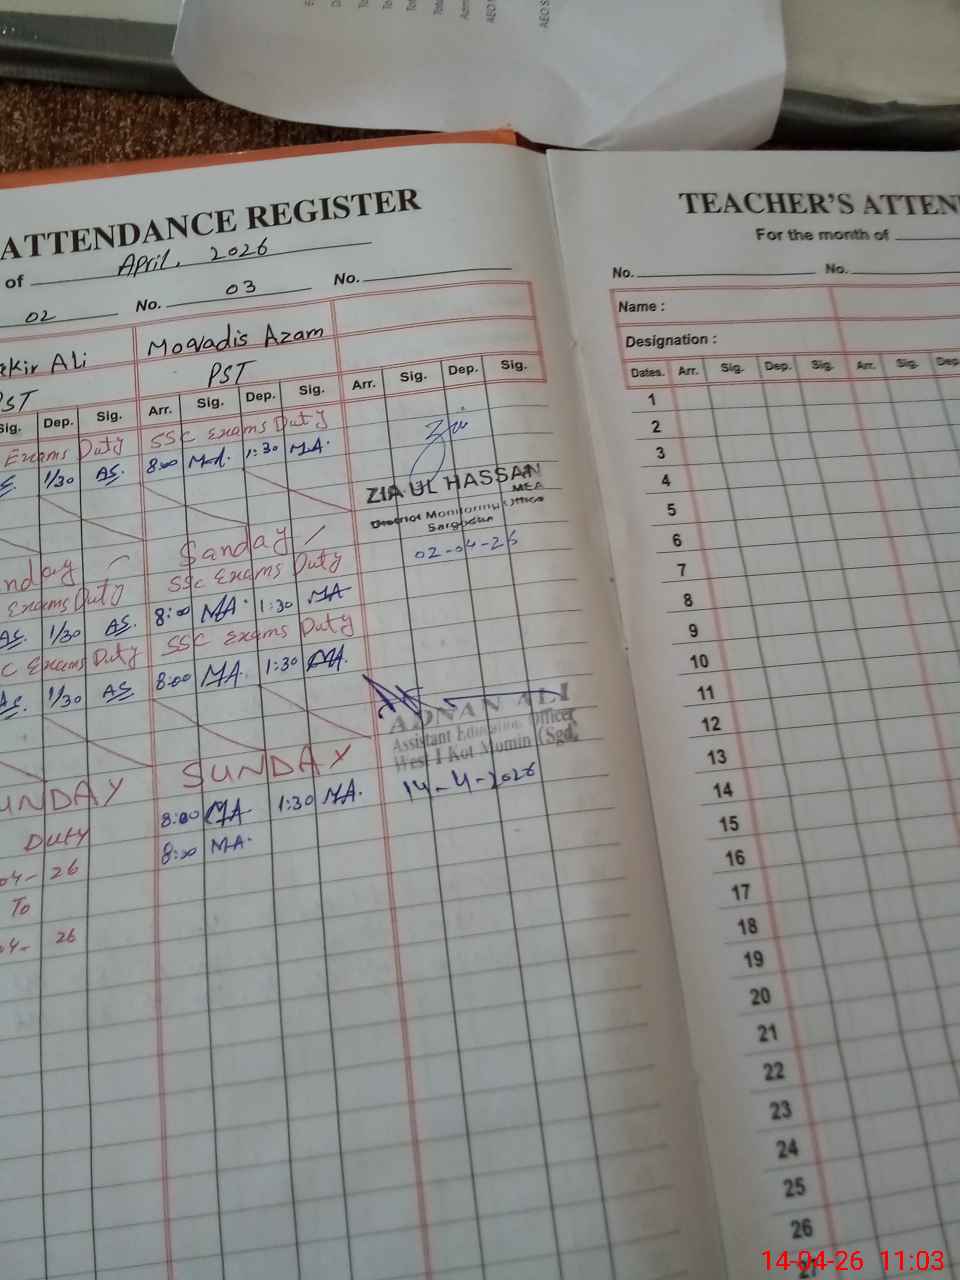 ATTENDANCE REGISTER
of April, 2026
02 No. 03 No.
Ali Movadis Azam
PST PST
Sig. Dep. Sig. Arr. Sig. Dep. Sig. Arr. Sig. Dep. Sig.
Exams Duty SSC Exams Duty
1/30 AS. 8:00 MA. 1:30 MA.
ZIA UL HASSAN
MEA
District Monitoring Office
Sargodha
02-04-26
Sanday
Exams Duty SSC Exams Duty
AS. 1/30 AS. 8:00 MA. 1:30 MA
C Exams Duty SSC Exams Duty
AS. 1/30 AS 8:00 MA. 1:30 MA.
ADNAN ALI
Assistant Education Officer
West I Kot Momin (Sgd.
14-4-2026
UNDAY SUNDAY
8:00 MA 1:30 MA.
DUTY 8:00 MA.
04- 26
To
04- 26
TEACHER'S ATTEN
For the month of
No. No.
Name :
Designation :
Dates. Arr. Sig. Dep. Sig. Arr. Sig. Dep.
1
2
3
4
5
6
7
8
9
10
11
12
13
14
15
16
17
18
19
20
21
22
23
24
25
26
27
14-04-26 11:03